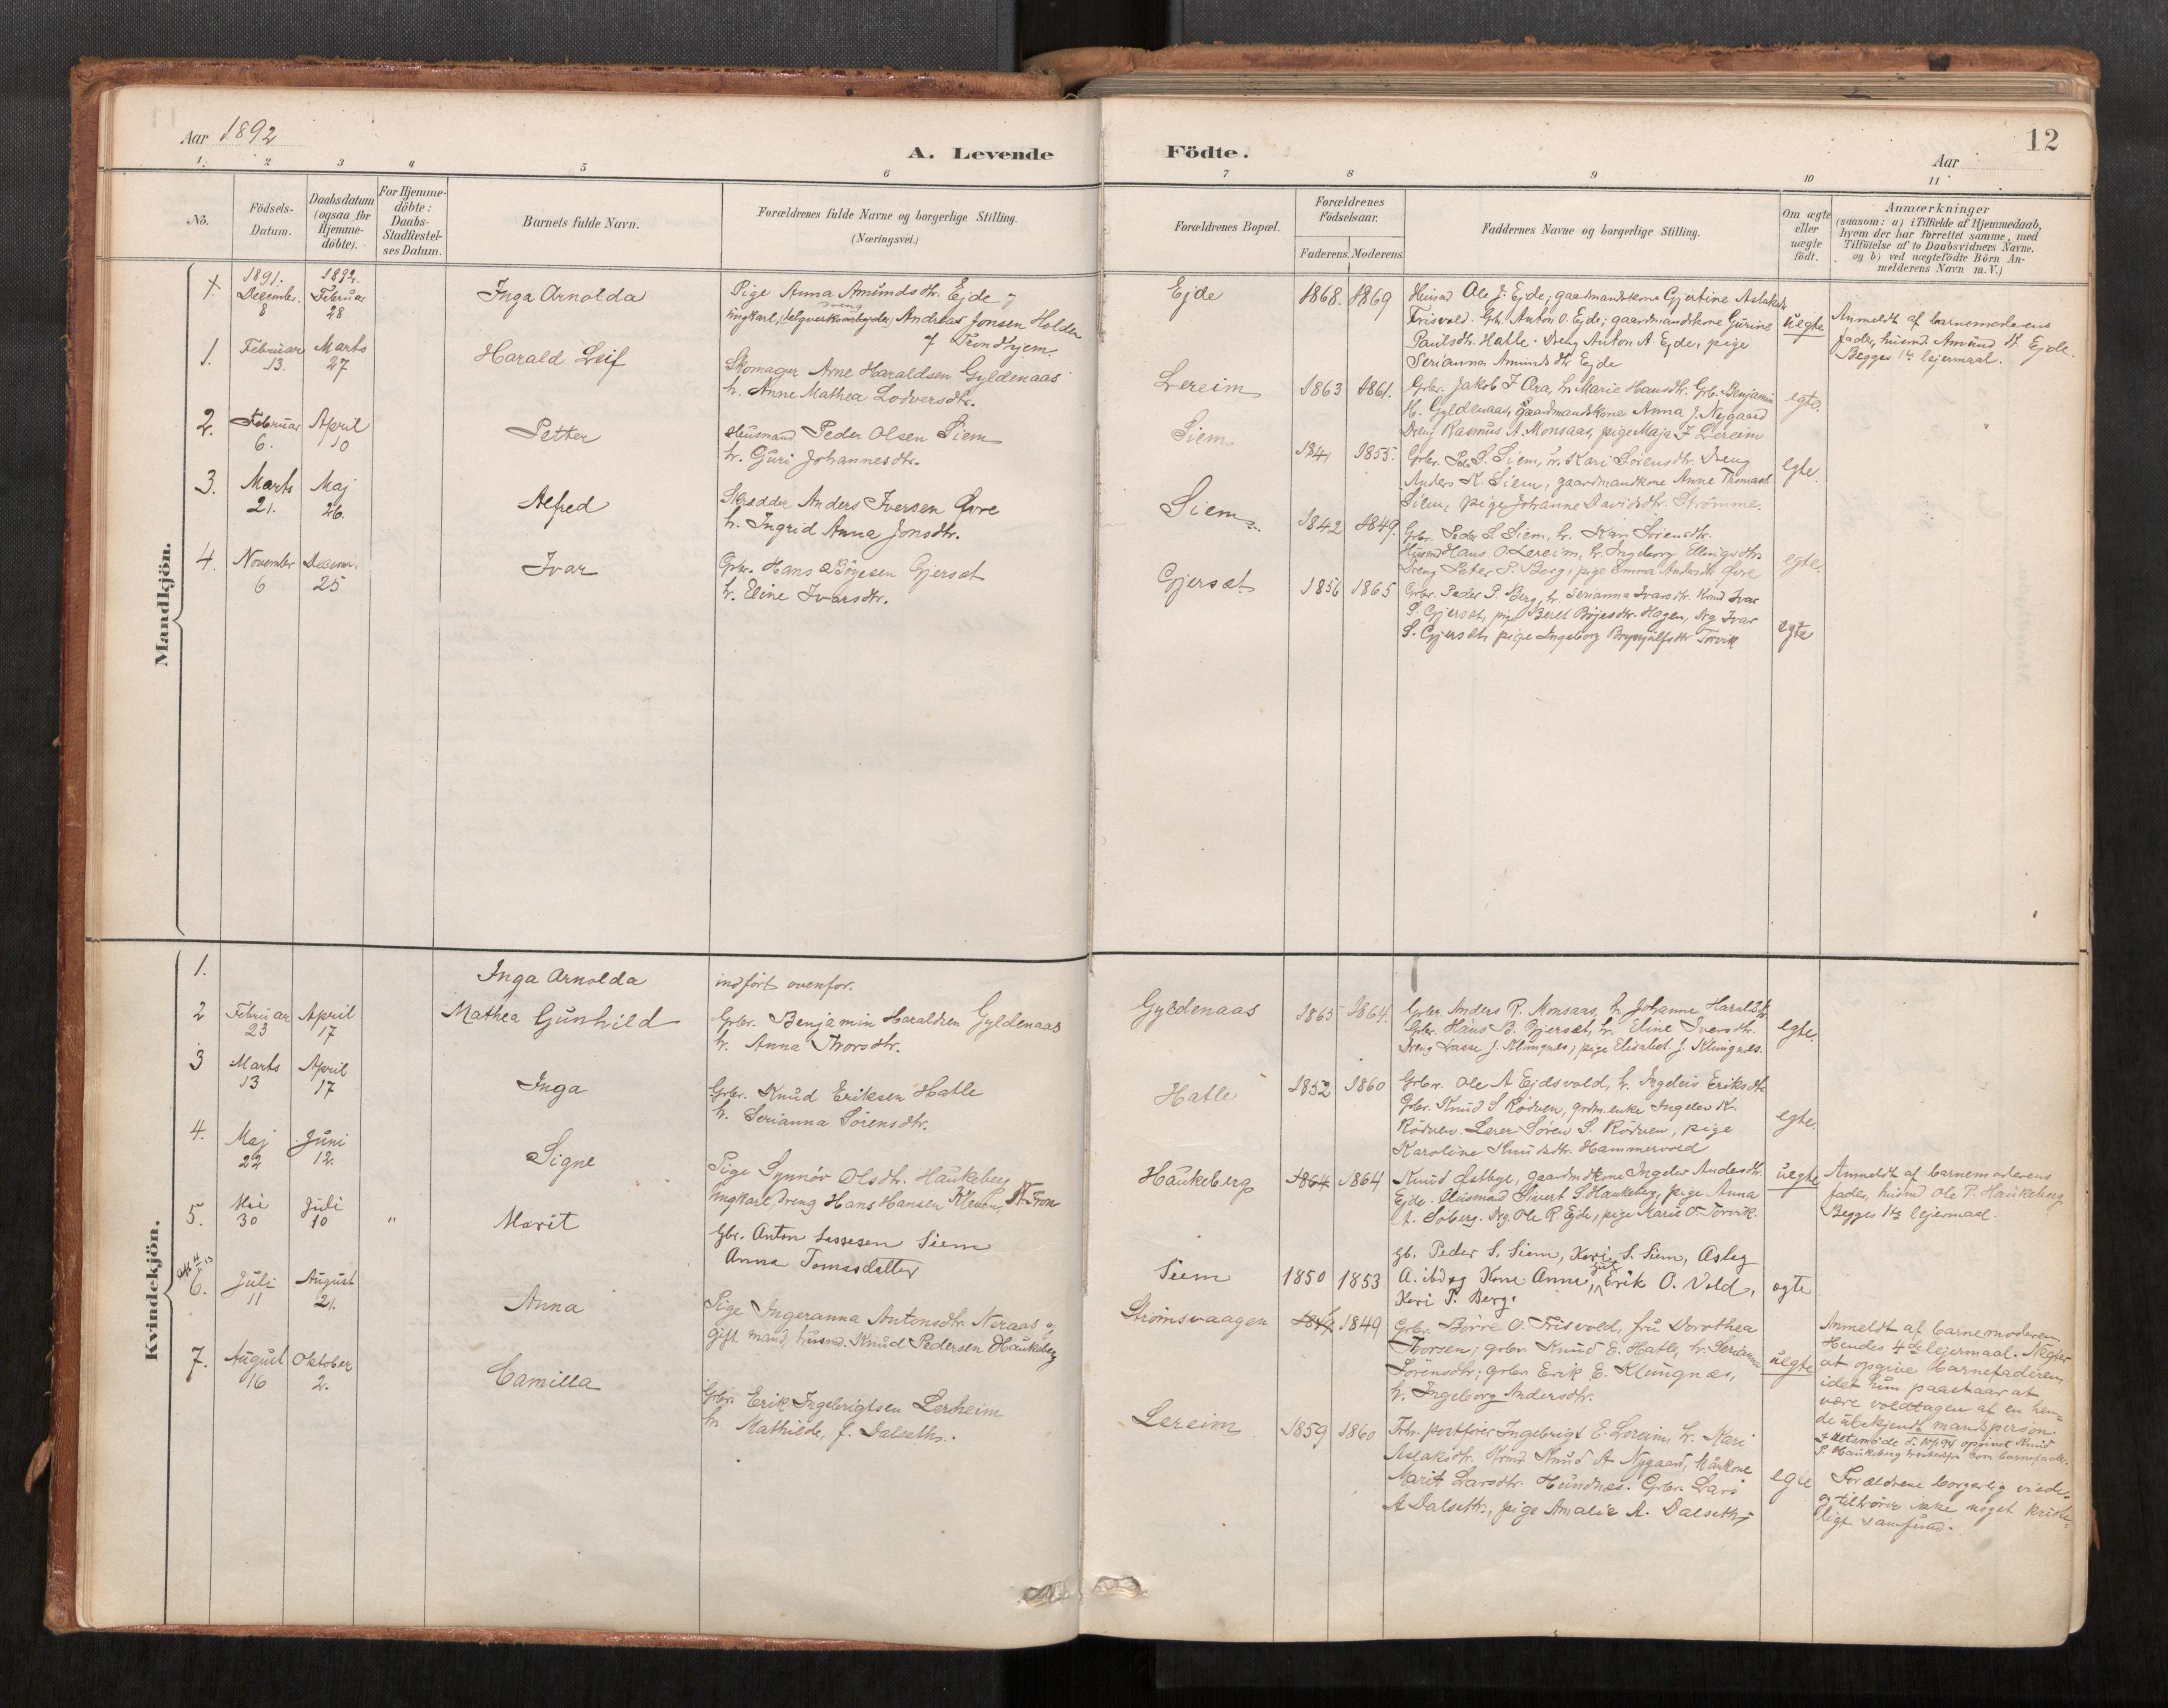 Aar 1892
A. Levende
1. 2 3 4 5 6
No.
Födsels-
Datum.
Daabsdatum
(ogsaa for
Hjemme-
döbte).
For Hjemme-
döbte:
Daabs-
Stadfæstel-
ses Datum.
Barnets fulde Navn.
Forældrenes fulde Navne og borgerlige Stilling.
(Næringsvei.)
Mandkjön.
1. 1891. December 8 1892. Februar 28 Inga Arnolda
Pige Anna Amundsdtr. Ejde og
ungkarl, Andreas Jonsen Holden
af Trondhjem.
1. Februar 13. Marts 27 Harald Leif
Skomager Arne Haraldsen Gyldenaas
h. Anne Mathea Lodversdtr.
2. Februar 6. April 10 Petter
Husmand Peder Olsen Siem
h. Guri Johannesdtr.
3. Marts 21. Maj 26. Alfred
Skrædder Anders Iversen Øvre
h. Ingrid Anna Jonsdtr.
4. November 6 Decem. 25 Ivar
Grbr. Hans Böyesen Gjersæt
h. Eline Ivarsdtr.
Kvindekjön.
1. Inga Arnolda indfört ovenfor.
2 Februar 23 April 17 Mathea Gunhild
Grbr. Benjamin Haraldsen Gyldenaas
h. Anna Thorsdtr.
3 Marts 13 April 17 Inga
Grbr. Knud Eriksen Hatle
h. Serianna Sörensdtr.
4. Maj 22 Juni 12. Signe
Pige Synnöv Olsdtr. Haukeberg
Ungkarl, dreng Hans Hansen Kleven, N. Fron
5. Mai 30 Juli 10 " Marit
Gbr. Anton Lassesen Siem
Anna Tomasdatter
6. Juli 11 August 21. Anna
Pige Ingeranna Antonsdtr. Neraas og
gift mand, husmd. Knud Pedersen Haukeberg
7. August 16 Oktober 2. Camilla
Grbr. Erik Ingebrigtsen Lerheim
h. Mathilde, f. Dalseth.
Födte.
Aar
12
7 8 9 10 11
Forældrenes Bopæl.
Forældrenes
Födselsaar.
Faderens. Moderens.
Faddernes Navne og borgerlige Stilling.
Om ægte
eller
uægte
födt.
Anmærkninger
(saasom: a) i Tilfælde af Hjemmedaab,
hvem der har forrettet samme, med
Tilföielse af to Daabsvidners Navne.
og b) ved uægtefödte Börn An-
melderens Navn m. V.)
Ejde 1868. 1869
Husmd Ole J. Ejde; gaardmandskone Gjertine Aslaksdtr
Frisvold. Gbr. Anton O. Ejde; gaardmandskone Gurine
Paulsdtr. Hatle. Dreng Anton A. Ejde, pige
Serianna Amundsdtr Ejde
uegte
Anmeldt af barnemoderens
fader, husmd. Amund Ejde.
Begges 1te lejermaal.
Lereim 1863 1861.
Grbr. Jakob J Ora, h. Marie Hansdtr. Grb. Benjamin
H. Gyldenaas, gaardmandskone Anna J. Nygaard
Dreng Rasmus A. Monsaas, pige Maja J Lereim
egte.
Siem 1841 1855.
Grbr. Peder S. Siem, h. Kari Sörensdtr. Dreng
Anders K. Siem, gaardmandkone Anne Thomasdtr
Siem, pige Johanne Davidsdtr. Strömme.
egte.
Siem 1842 1849.
Grbr. Peder S. Siem, h. Kari Sörensdtr.
Husmd Hans O Lereim, h. Ingeborg Ellingsdtr.
Dreng Peter P. Berg, pige Emma Andersdtr Øvre
egte.
Gjersæt 1856 1865
Grbr. Peder P. Berg, h. Serianna Ivarsdtr. Kmd Ivar
P. Gjersæt, pige Beret Böjesdtr. Hagen, drg Ivar
S. Gjersæt, pige Ingeborg Brynjulfsdtr Torvik
egte
Gyldenaas 1865 1864.
Grbr. Anders R. Monsaas, h. Johanne Haraldsdtr.
Grbr. Hans B. Gjersæt, h. Eline Iversdtr.
Dreng Lasse J. Klungnes; pige Elisabet J. Klungnes.
egte.
Hatle 1852 1860
Grbr. Ole A Ejdsvold, h. Ingeleiv Eriksdtr
Grbr. Knud S Rödven, grdm.enke Ingelev K.
Rödven. Lærer Sören S. Rödven, pige
Karoline Knudsdtr. Hammervold
egte.
Haukeberg 1864 1864
Knud Østbye, gaardmdkone Ingelev Andersdtr.
Ejde. Husmand Sivert S. Haukeberg, pige Anna
A. Söberg. Drg. Ole R. Ejde, pige Marie O. Torvik.
uegte
Anmeldt af barnemoderens
fader, husmd Ole P. Haukeberg
Begges 1te lejermaal.
Siem 1850 1853
Gb. Peder S. Siem, Kari S. Siem, Aslag
A. ibd og Kone Anne, Erik O. Vold,
Kari P. Berg.
egte
Strömsvaagen 1849 1849
Grbr. Börre O. Frisvold, fru Dorothea
Thorsen; grbr. Knud E. Hatle, h. Serianna
Sörensdtr; grbr. Erik E. Klungnæs,
h. Ingeborg Andersdtr.
uegte
Anmeldt af barnemoderen
Hendes 4de lejermaal. Negter
at opgive barnefaderen,
idet hun paastaar at
være voldtagen af en hen-
de ubekjendt mandsperson.
P. Haukeberg som barnefader.
Lereim 1859 1860
Fhv. postförer Ingebrigt E. Lereim, h. Mari
Aslaksdtr. Kmd Knud A Nygaard, kårkone
Marit Larsdtr. Hundnes. Grbr. Lars
A Dalseth, pige Amalie A. Dalseth
egte
Forældrene borgerlig viede
og tilhörer ikke noget krist-
ligt samfund.